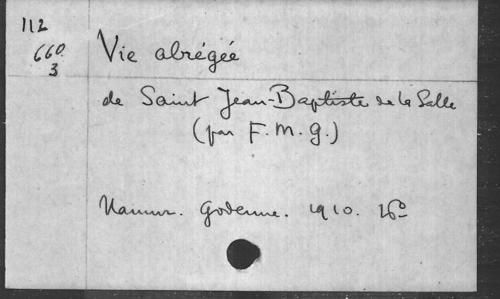 112
660
3
Vie abrégée
de Saint Jean-Baptiste de la Salle
(par F. M. G.)
Namur. Godenne. 1910. 16º